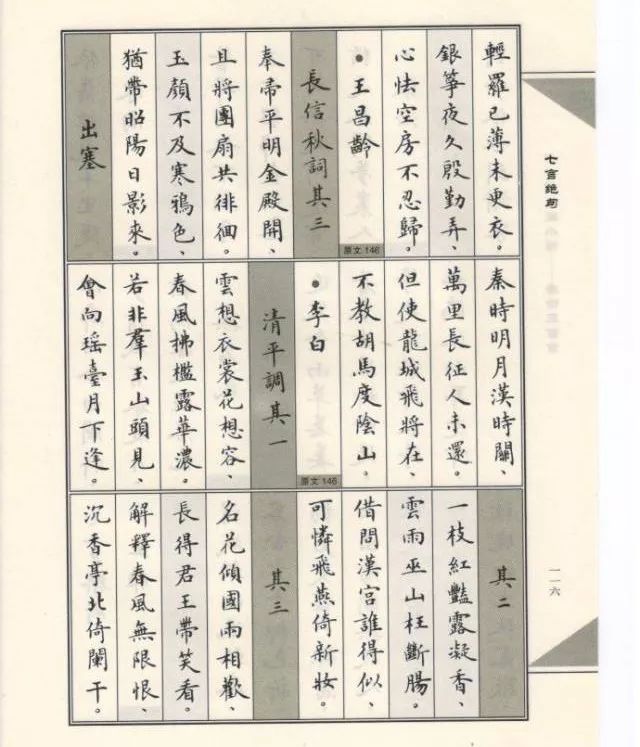 七言絕句
一一六
輕羅已薄未更衣。
銀箏夜久殷勤弄、
心怯空房不忍歸。
原文146
•王昌齡
長信秋詞其三
奉帚平明金殿開、
且將團扇共徘徊。
玉顏不及寒鴉色、
猶帶昭陽日影來。
出塞
秦時明月漢時關、
萬里長征人未還。
但使龍城飛將在、
不教胡馬度陰山。
原文146
•李白
清平調其一
雲想衣裳花想容、
春風拂檻露華濃。
若非羣玉山頭見、
會向瑤臺月下逢。
其二
一枝紅豔露凝香、
雲雨巫山枉斷腸。
借問漢宮誰得似、
可憐飛燕倚新妝。
其三
名花傾國兩相歡、
長得君王帶笑看。
解釋春風無限恨、
沉香亭北倚闌干。